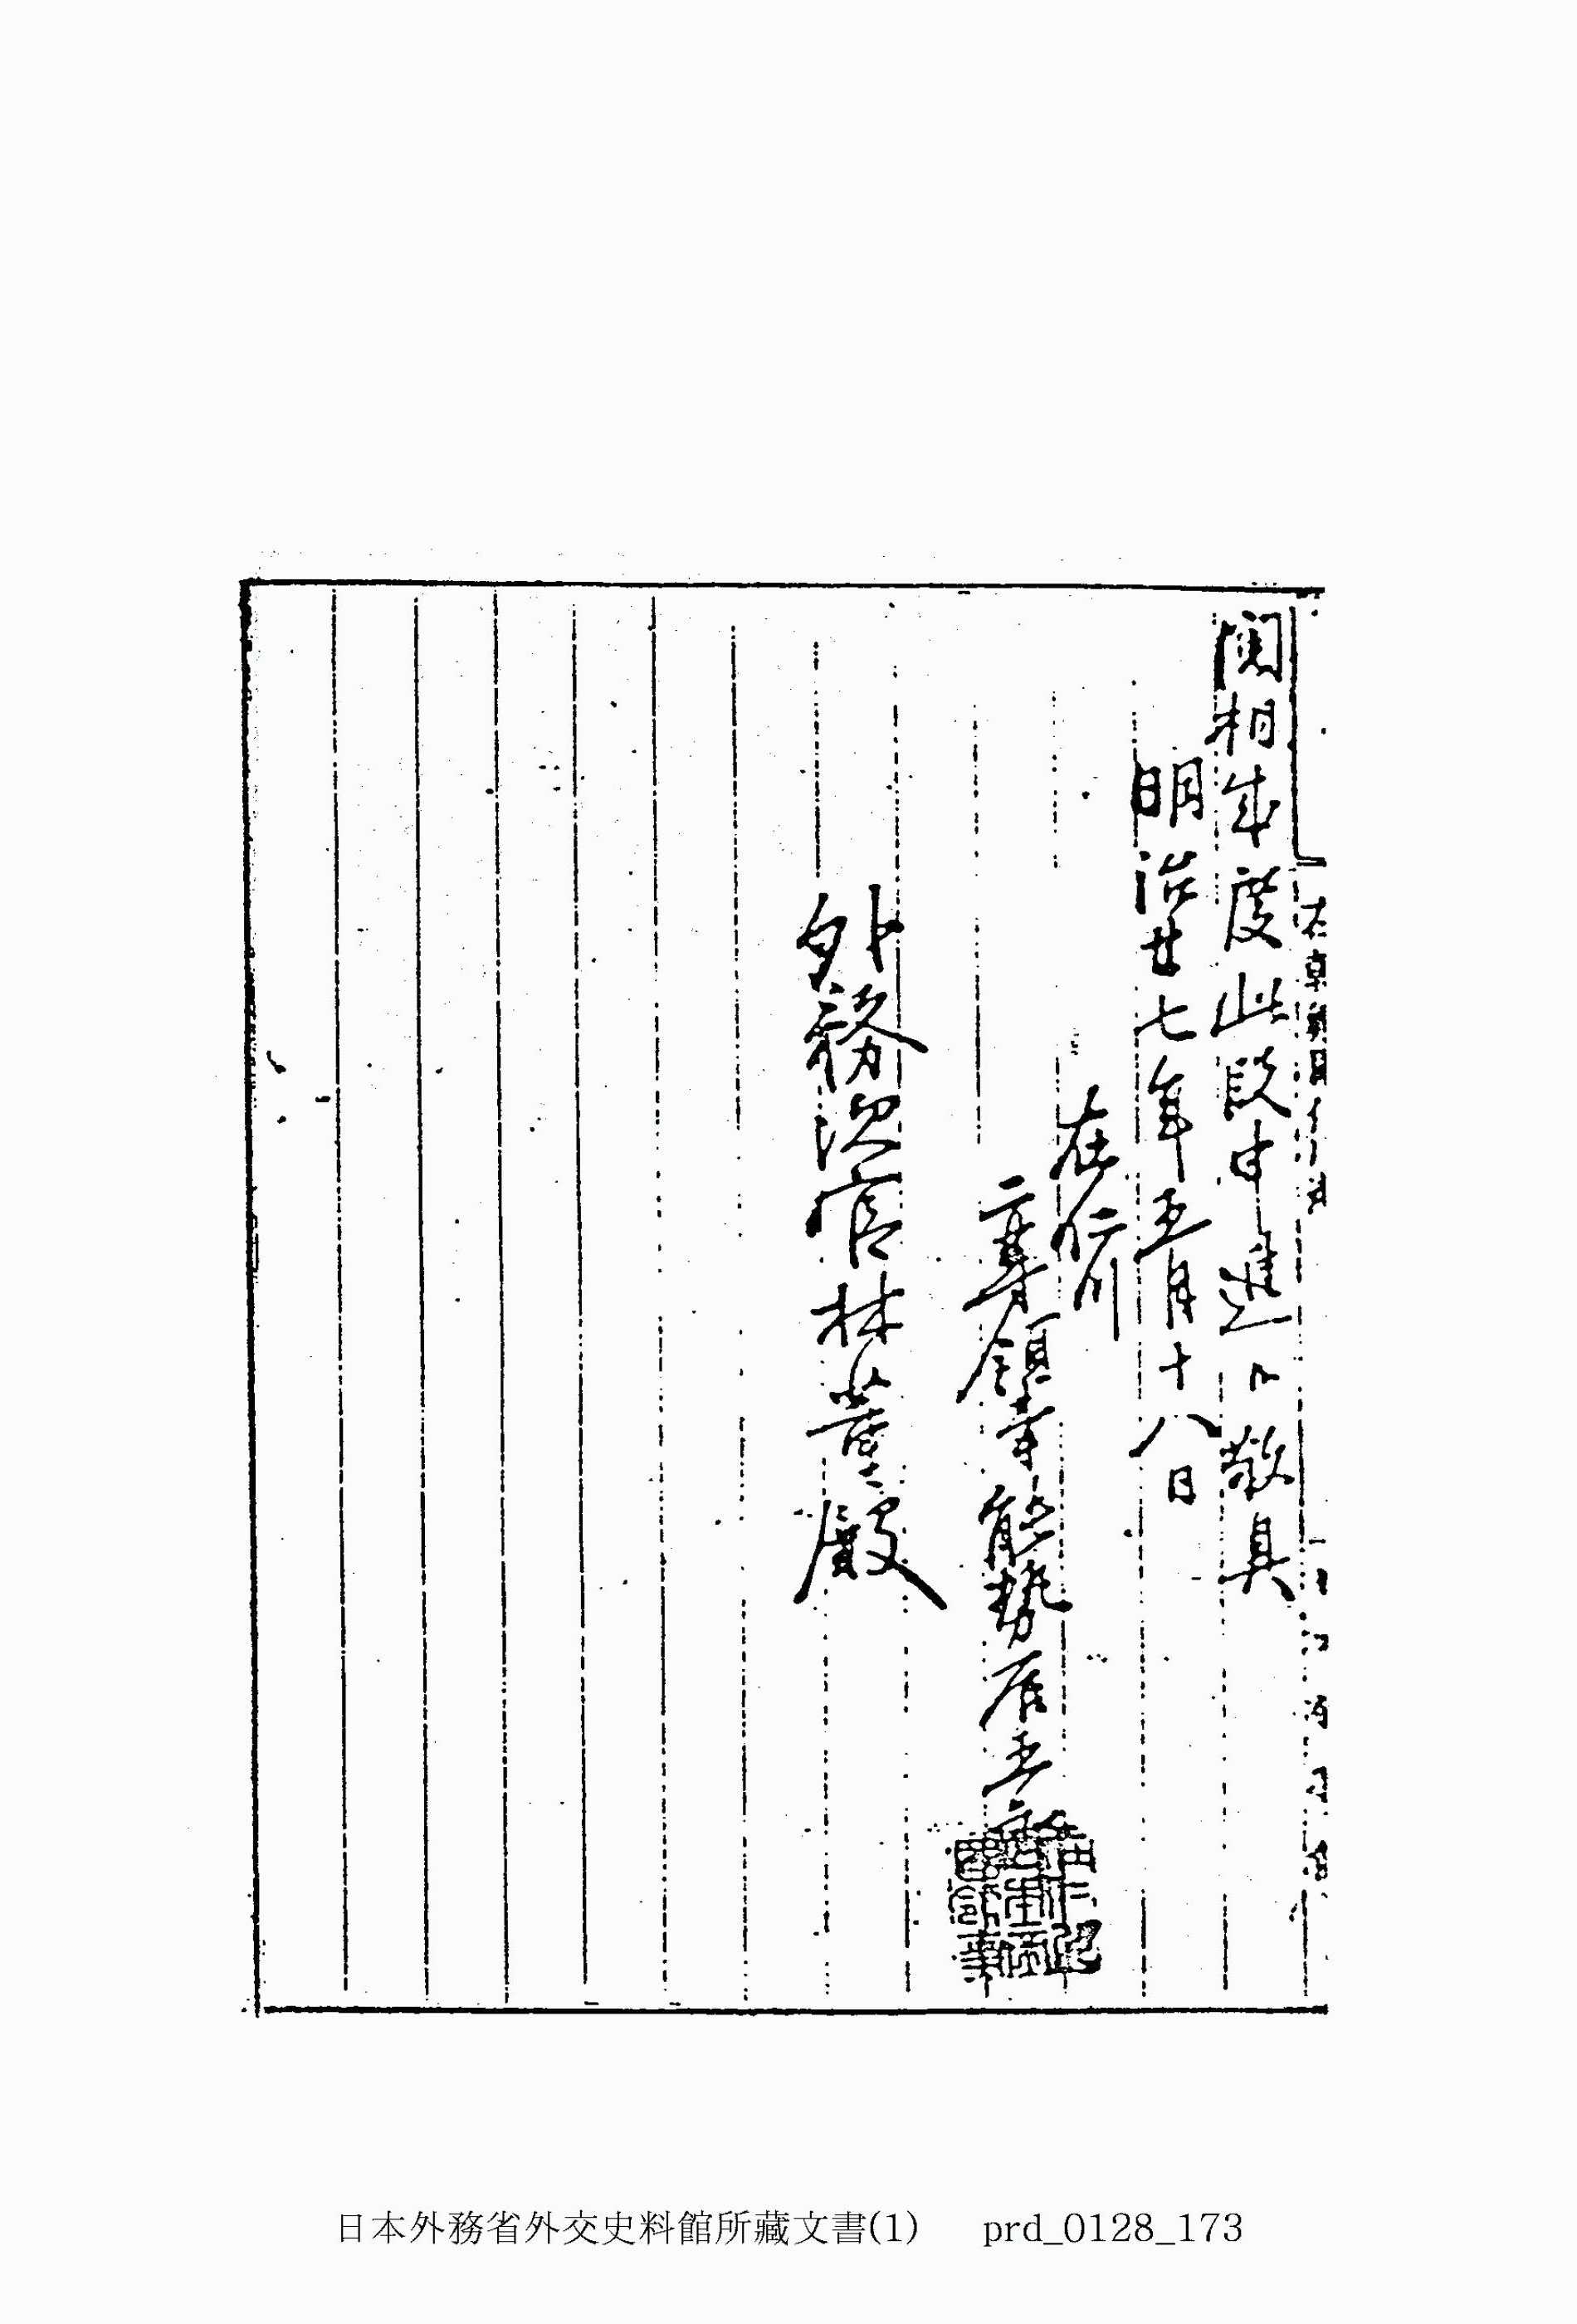 相成度此段申進候敬具
明治廿七年五月十八日
在仁川
二等領事能勢辰五郎
外務次官林董殿
日本外務省外交史料館所藏文書(1) prd_0128_173